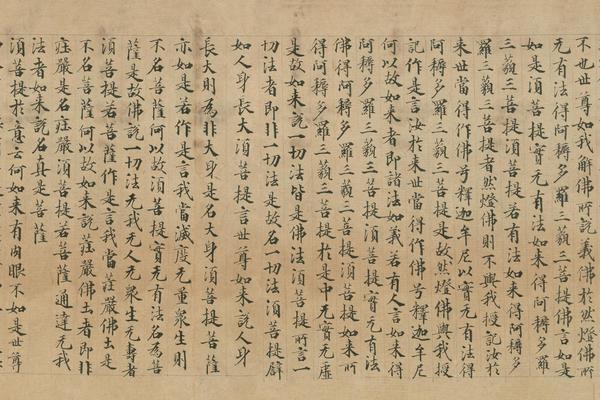 不也世尊如我解佛所說義佛於然燈佛所
无有法得阿耨多羅三藐三菩提佛言如是
如是須菩提實无有法如來得阿耨多羅
三藐三菩提須菩提若有法如來得阿耨多
羅三藐三菩提者然燈佛則不與我授記汝於
來世當得作佛号釋迦牟尼以實无有法得
阿耨多羅三藐三菩提是故然燈佛與我授
記作是言汝於來世當得作佛号釋迦牟尼
何以故如來者即諸法如義若有人言如來得
阿耨多羅三藐三菩提須菩提實无有法
佛得阿耨多羅三藐三菩提須菩提如來所
得阿耨多羅三藐三菩提於是中无實无虛
是故如來說一切法皆是佛法須菩提所言一
切法者即非一切法是故名一切法須菩提譬
如人身長大須菩提言世尊如來說人身
長大則為非大身是名大身須菩提菩薩
亦如是若作是言我當滅度无量衆生則
不名菩薩何以故須菩提實无有法名為菩
薩是故佛說一切法无我无人无衆生无壽者
須菩提若菩薩作是言我當莊嚴佛土是
不名菩薩何以故如來說莊嚴佛土者即非
莊嚴是名莊嚴須菩提若菩薩通達无我
法者如來說名真是菩薩
須菩提於意云何如來有肉眼不如是世尊